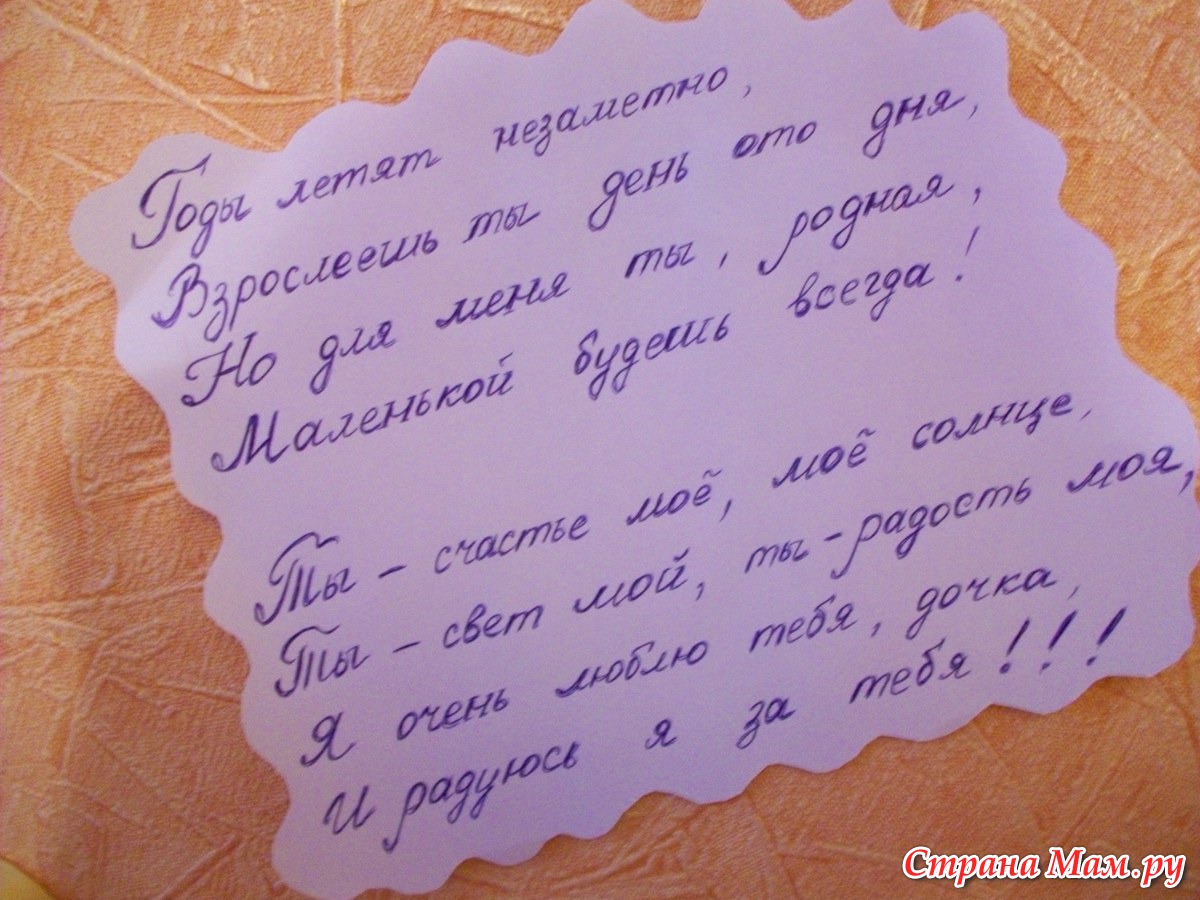 Годы летят незаметно,
Взрослеешь ты день ото дня,
Но для меня ты, родная,
Маленькой будешь всегда!
Ты – счастье моё, моё солнце,
Ты – свет мой, ты – радость моя,
Я очень люблю тебя, дочка,
И радуюсь я за тебя!!!
Страна Мам.ру